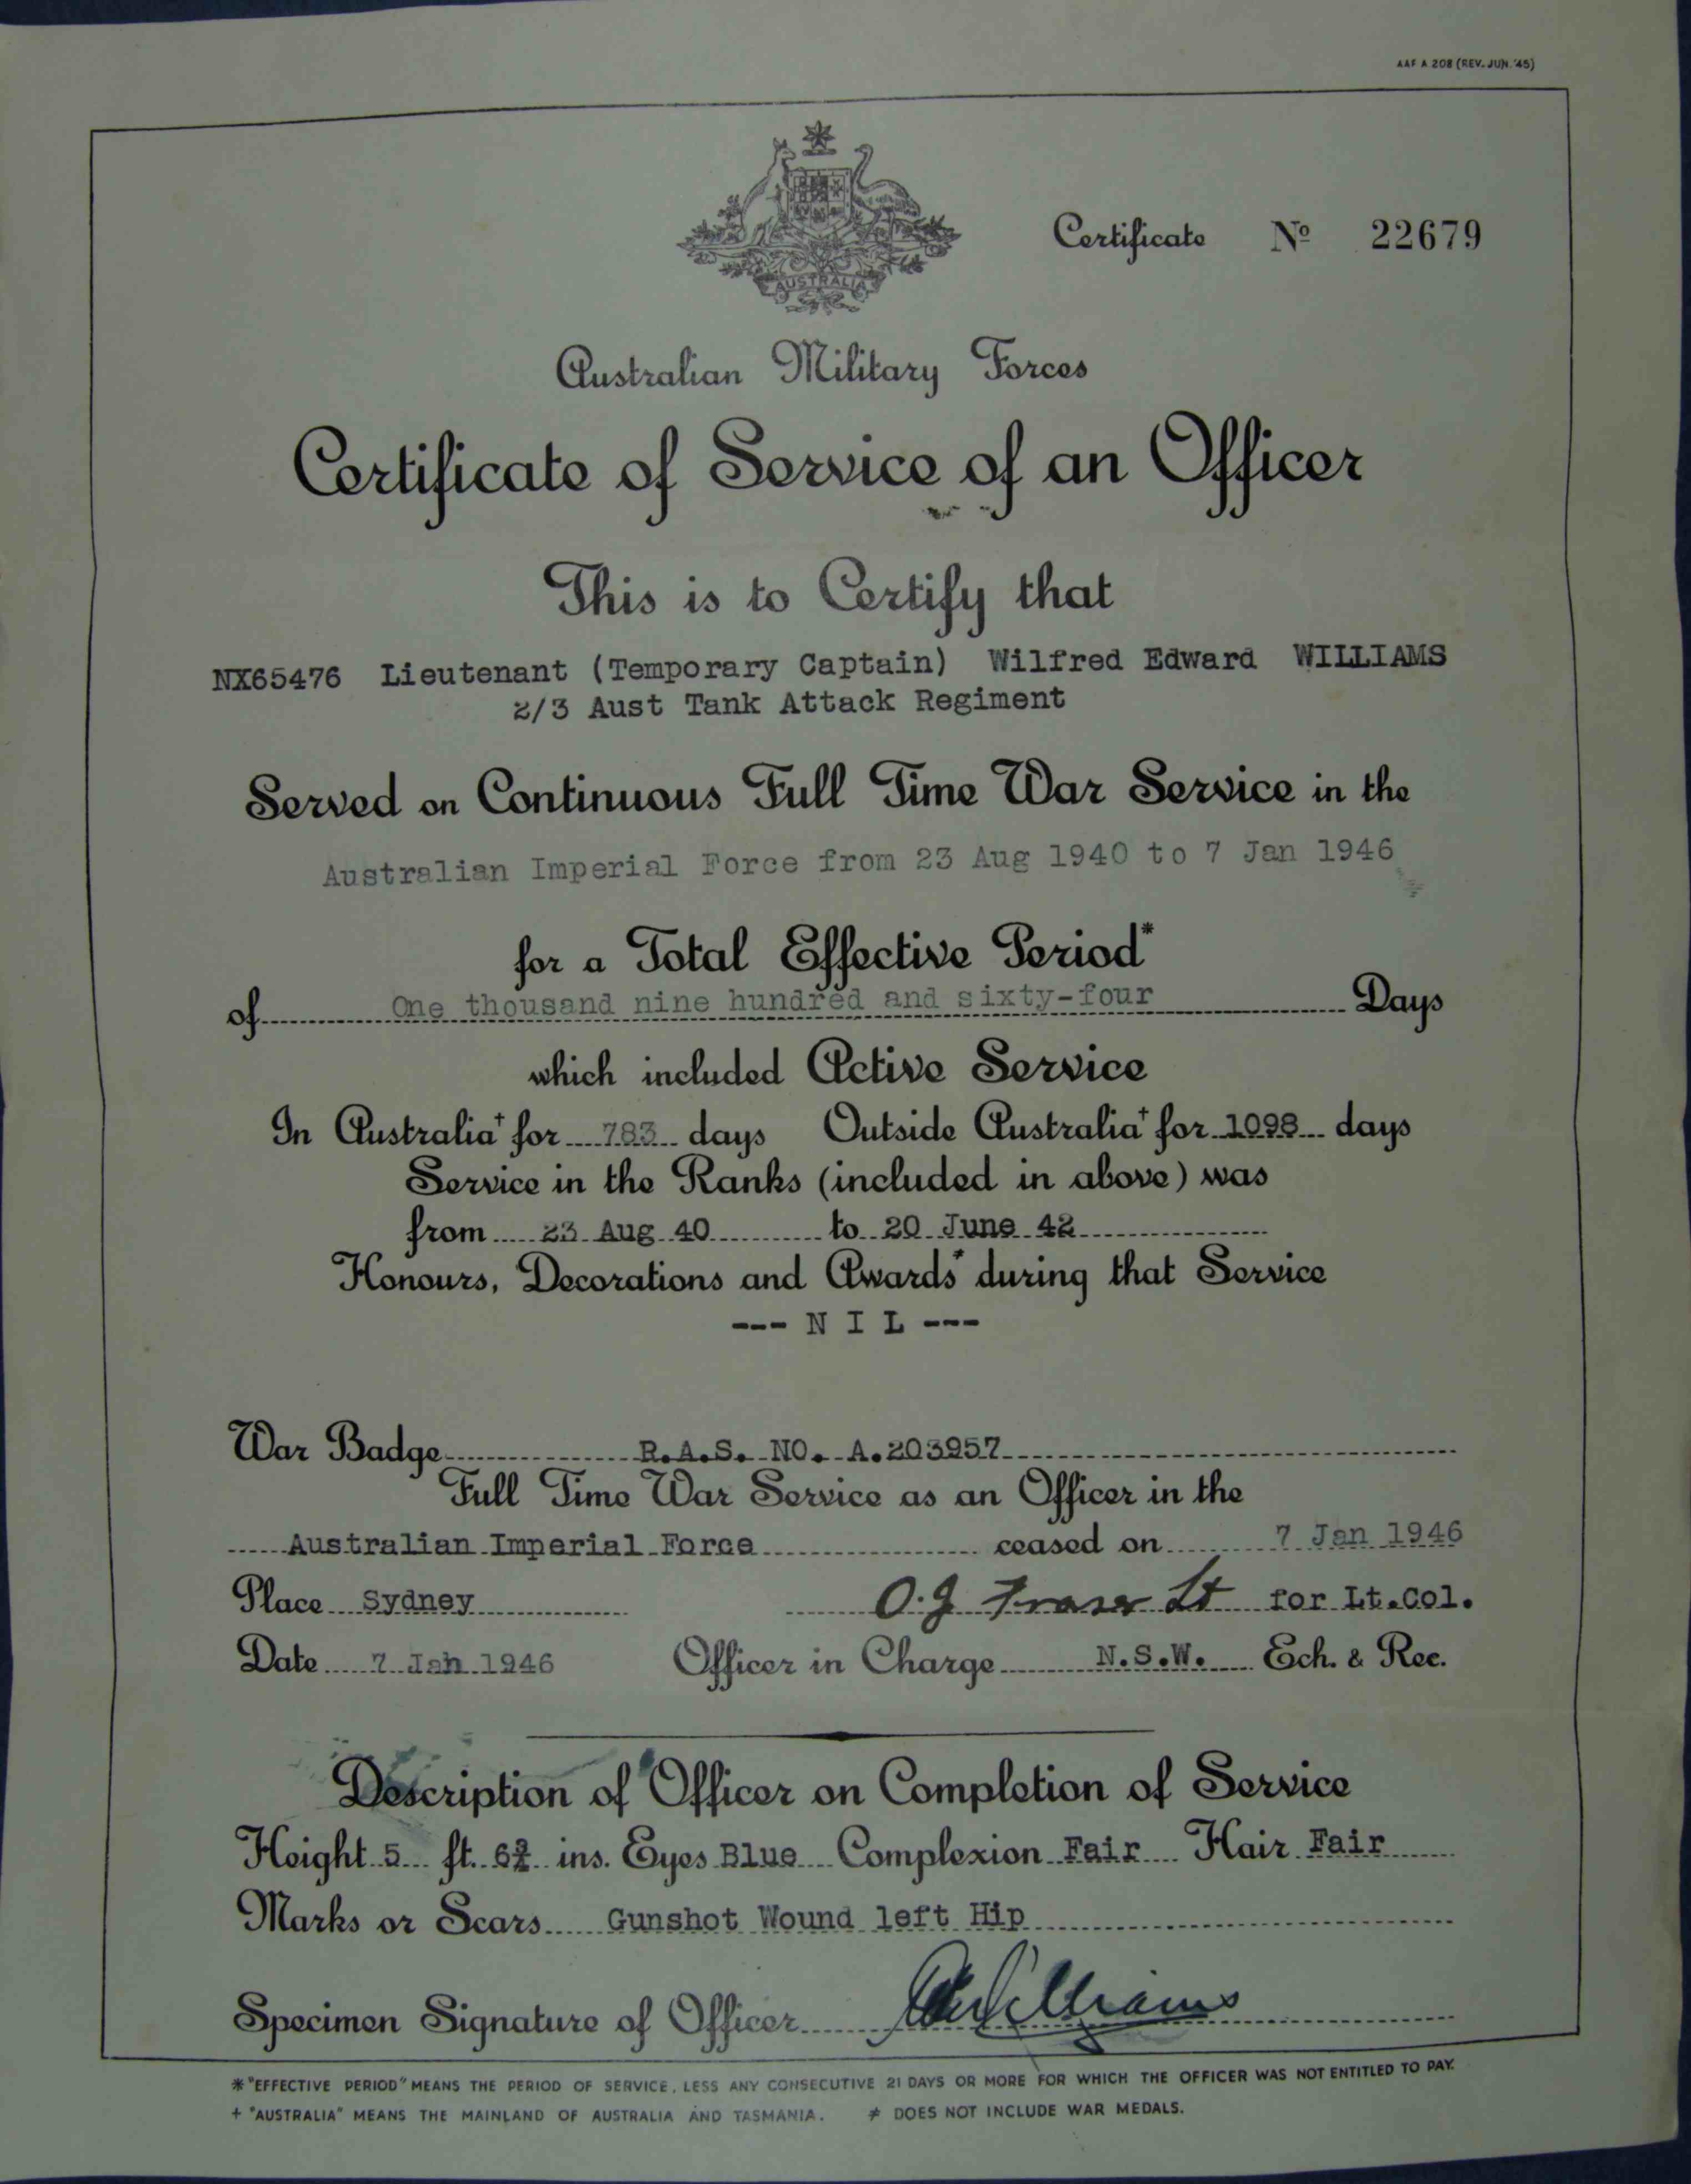 AAF A 208 (REV. JUN. '45)
AUSTRALIA
Certificate No 22679
Australian Military Forces
Certificate of Service of an Officer
This is to Certify that
NX65476 Lieutenant (Temporary Captain) Wilfred Edward WILLIAMS
2/3 Aust Tank Attack Regiment
Served on Continuous Full Time War Service in the
Australian Imperial Force from 23 Aug 1940 to 7 Jan 1946
for a Total Effective Period*
of One thousand nine hundred and sixty-four Days
which included Active Service
In Australia+ for 783 days Outside Australia+ for 1098 days
Service in the Ranks (included in above) was
from 23 Aug 40 to 20 June 42
Honours, Decorations and Awards≠ during that Service
--- N I L ---
War Badge R.A.S. NO. A.203957
Full Time War Service as an Officer in the
Australian Imperial Force ceased on 7 Jan 1946
Place Sydney O.J. Fraser Lt for Lt.Col.
Date 7 Jan 1946 Officer in Charge N.S.W. Ech. & Rec.
Description of Officer on Completion of Service
Height 5 ft. 6¾ ins. Eyes Blue Complexion Fair Hair Fair
Marks or Scars Gunshot Wound left Hip
Specimen Signature of Officer Williams
* "EFFECTIVE PERIOD" MEANS THE PERIOD OF SERVICE, LESS ANY CONSECUTIVE 21 DAYS OR MORE FOR WHICH THE OFFICER WAS NOT ENTITLED TO PAY.
+ "AUSTRALIA" MEANS THE MAINLAND OF AUSTRALIA AND TASMANIA. ≠ DOES NOT INCLUDE WAR MEDALS.